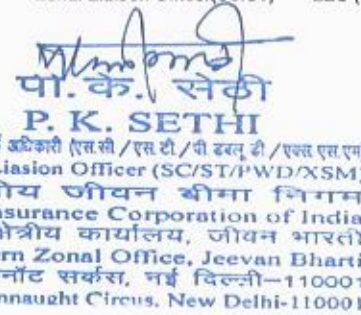 पी. के. सेठी
P. K. SETHI
अधिकारी (एस.सी./एस.टी./पी डबलू डी/एक्स एस.एम
iasion Officer (SC/ST/PWD/XSM)
ीय जीवन बीमा निगम
nsurance Corporation of India
क्षेत्रीय कार्यालय, जीवन भारती
rn Zonal Office, Jeevan Bharti
नॉट सर्कस, नई दिल्ली-110001
nnaught Circus, New Delhi-110001